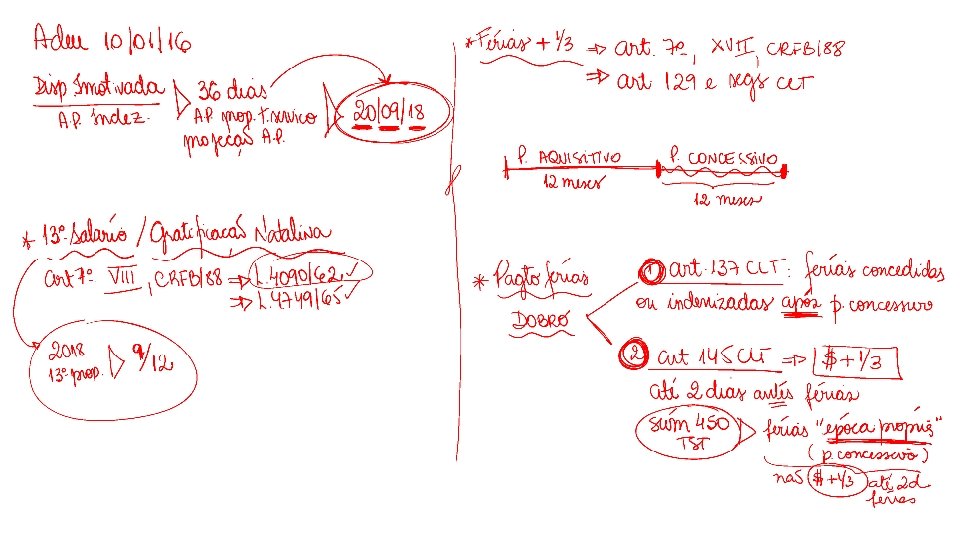 Adm 10/01/16
Disp. Imotivada
A.P. indez.
36 dias
A.P. prop. t. serviço
projeção A.P.
20/09/18
* 13º Salário / Gratificação Natalina
art 7º VIII, CRFB/88 ⇒ L. 4090/62 ✓
⇒ L. 4749/65 ✓
2018
13º prop.
9/12
* Férias + 1/3 ⇒ art. 7º, XVII, CRFB/88
⇒ art 129 e segs CLT
P. AQUISITIVO
12 meses
P. CONCESSIVO
12 meses
* Pagto férias
DOBRO
1 art. 137 CLT: férias concedidas
ou indenizadas após p. concessivo
2 art 145 CLT ⇒ $ + 1/3
até 2 dias antes férias
Súm 450
TST
férias "época própria"
(p. concessivo)
mas $ + 1/3 até 2d
férias